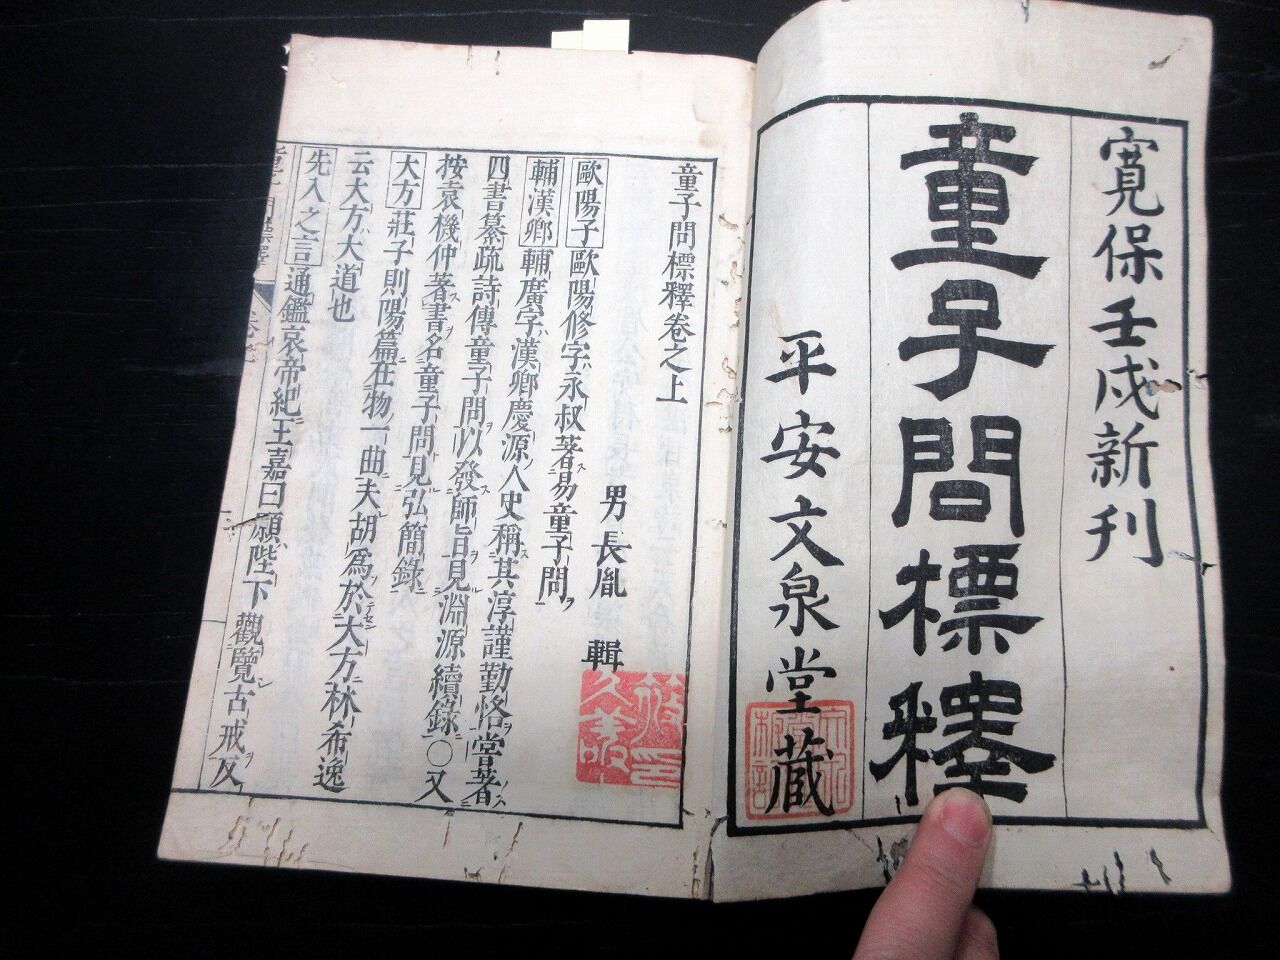 寛保壬戌新刊
童子問標釋
平安文泉堂藏
童子問標釋卷之上
男長胤輯
歐陽子歐陽修字永叔著易童子問
輔漢卿輔廣字漢卿慶源人史稱其淳謹勤恪嘗著
四書纂疏詩傳童子問以發師旨見淵源續錄〇又
按袁機仲著書名童子問見弘簡錄
大方莊子則陽篇在物一曲夫胡為於大方林希逸
云大方大道也
先入之言通鑑哀帝紀王嘉曰願陛下觀覽古戒反